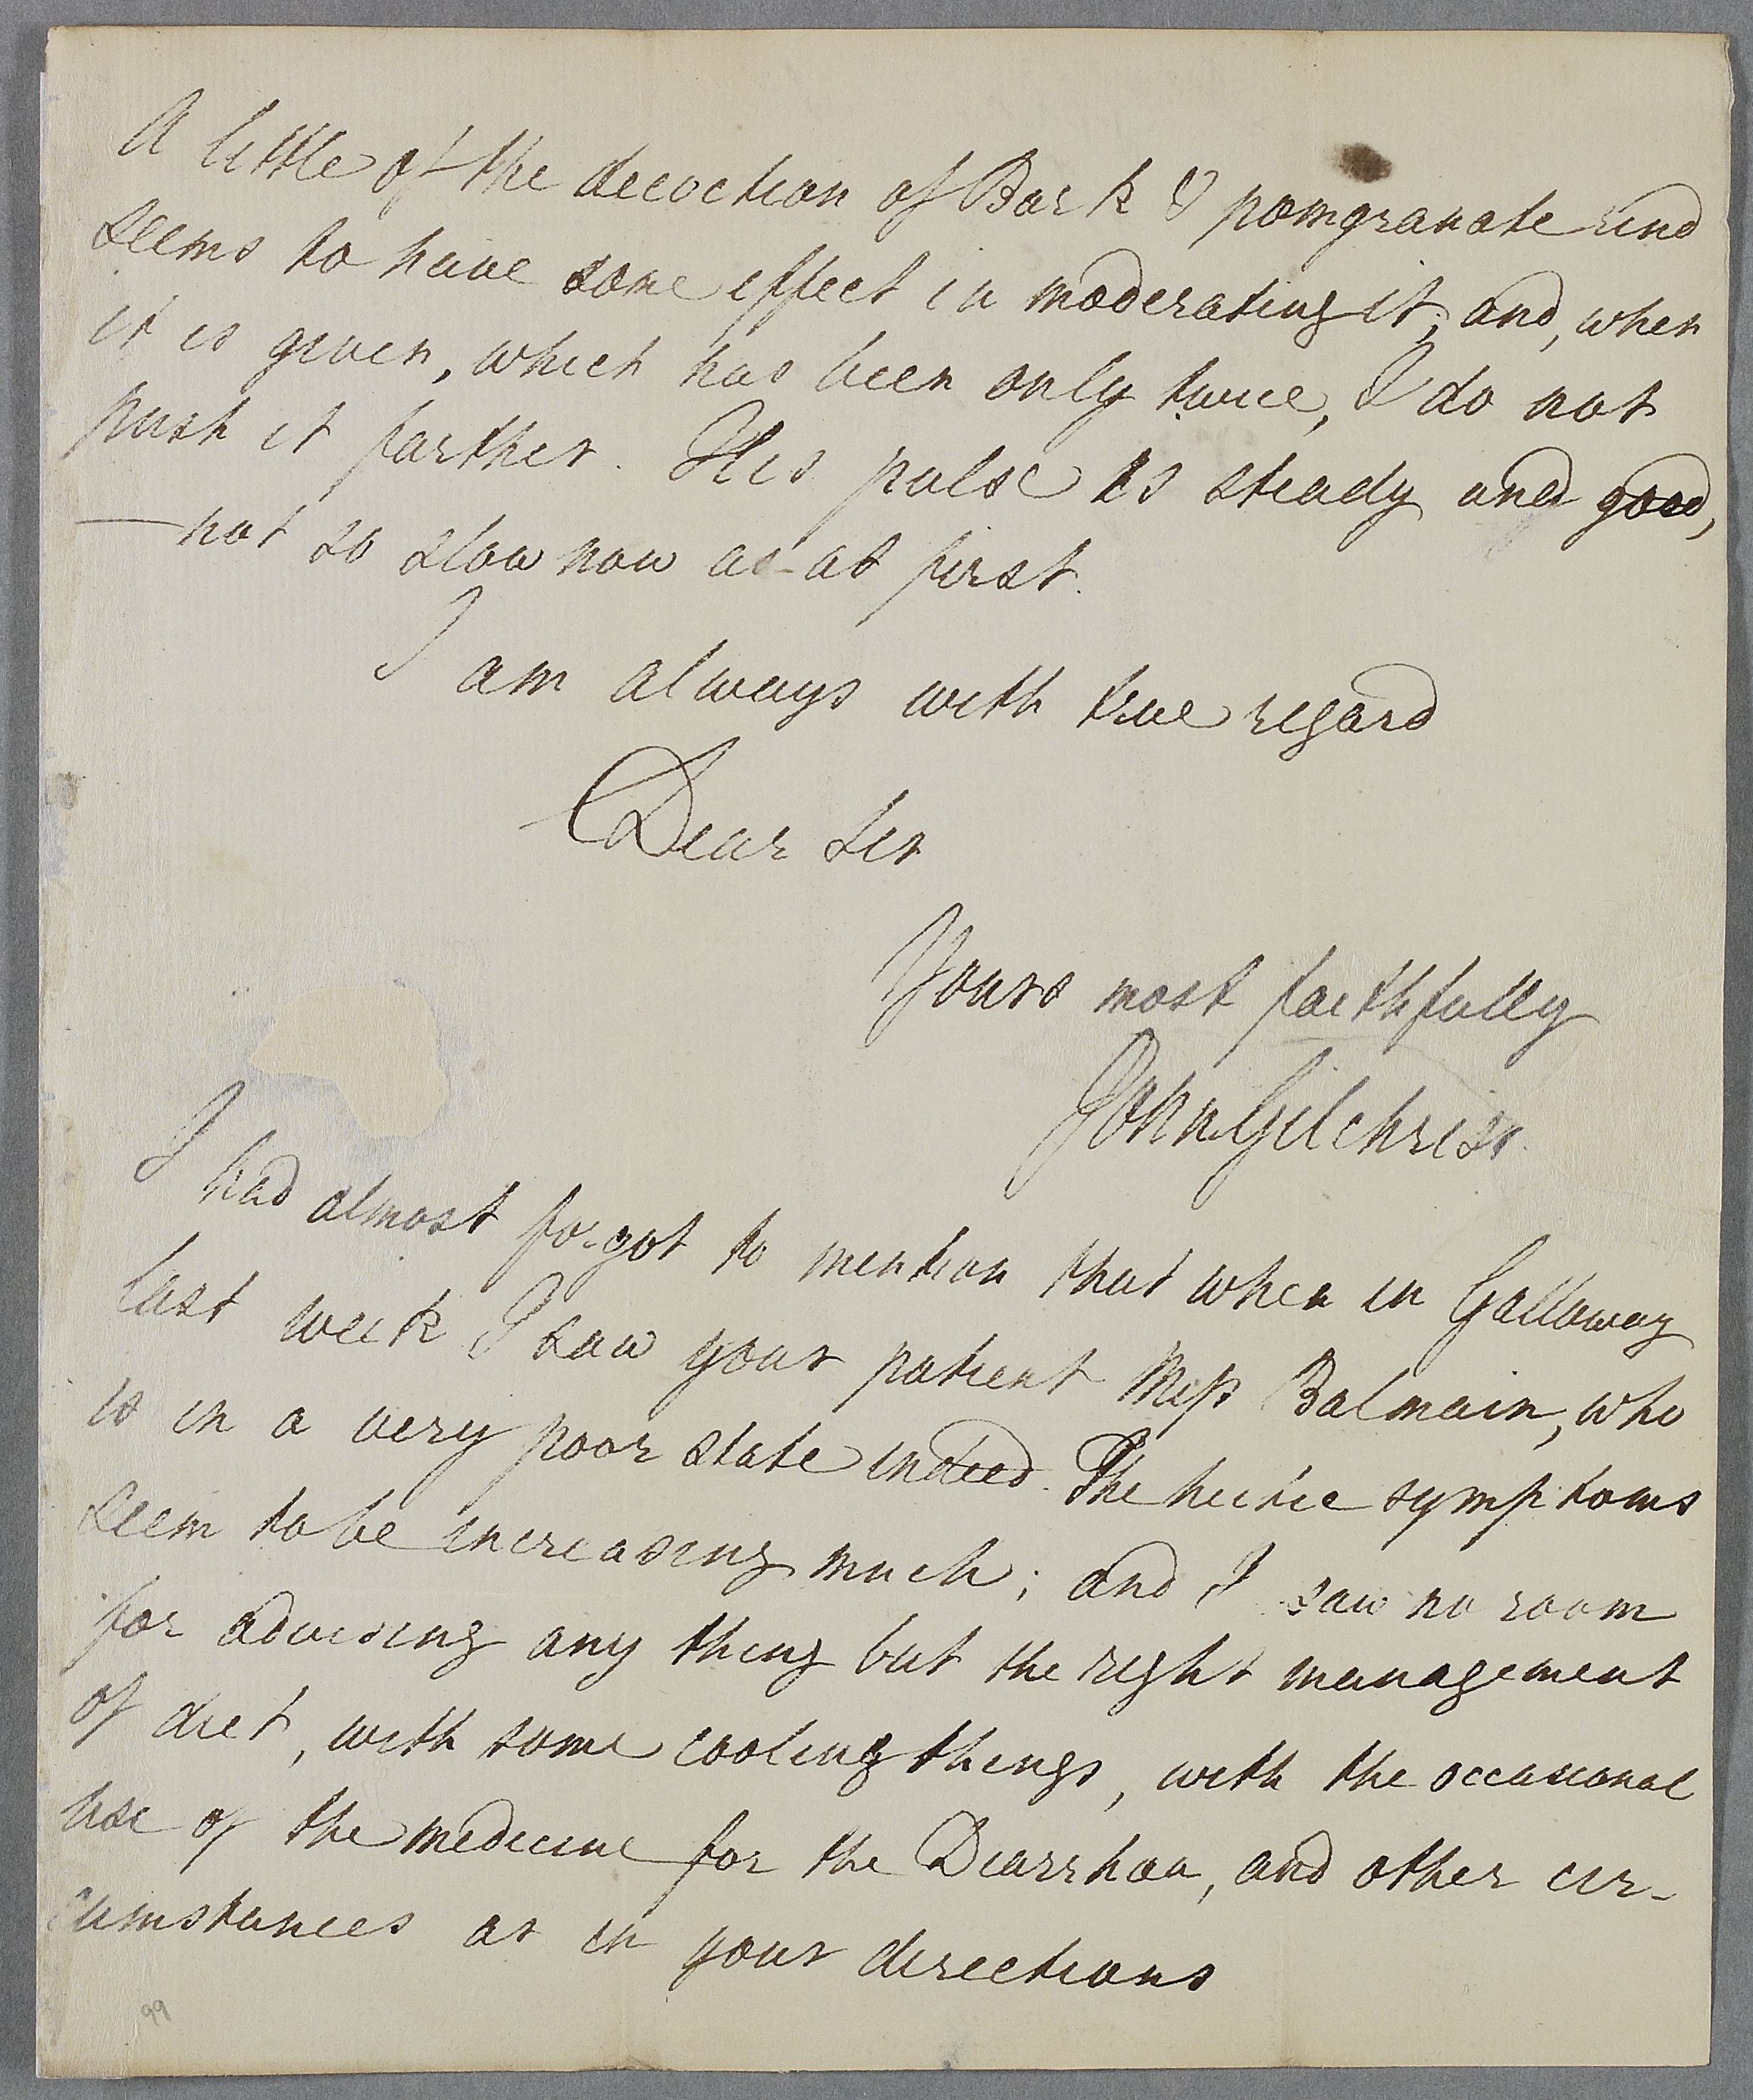 A little of the decoction of Bark & pomgranate rind
seems to have some effect in moderating it; and, when
it is given, which has been only twice, I do not
push it farther. His pulse is steady and good,
—not so slow now as at first.
I am always with true regard
Dear Sir
Yours most faithfully
John Gilchrist.
I had almost forgot to mention that when in Galloway
last week I saw your patient Miss Balmain, who
is in a very poor state indeed. The hectic symptoms
seem to be increasing much; and I saw no room
for advising any thing but the right management
of diet, with some cooling things, with the occasional
use of the medicine for the Diarrhoea, and other cir-
cumstances as in your directions
99